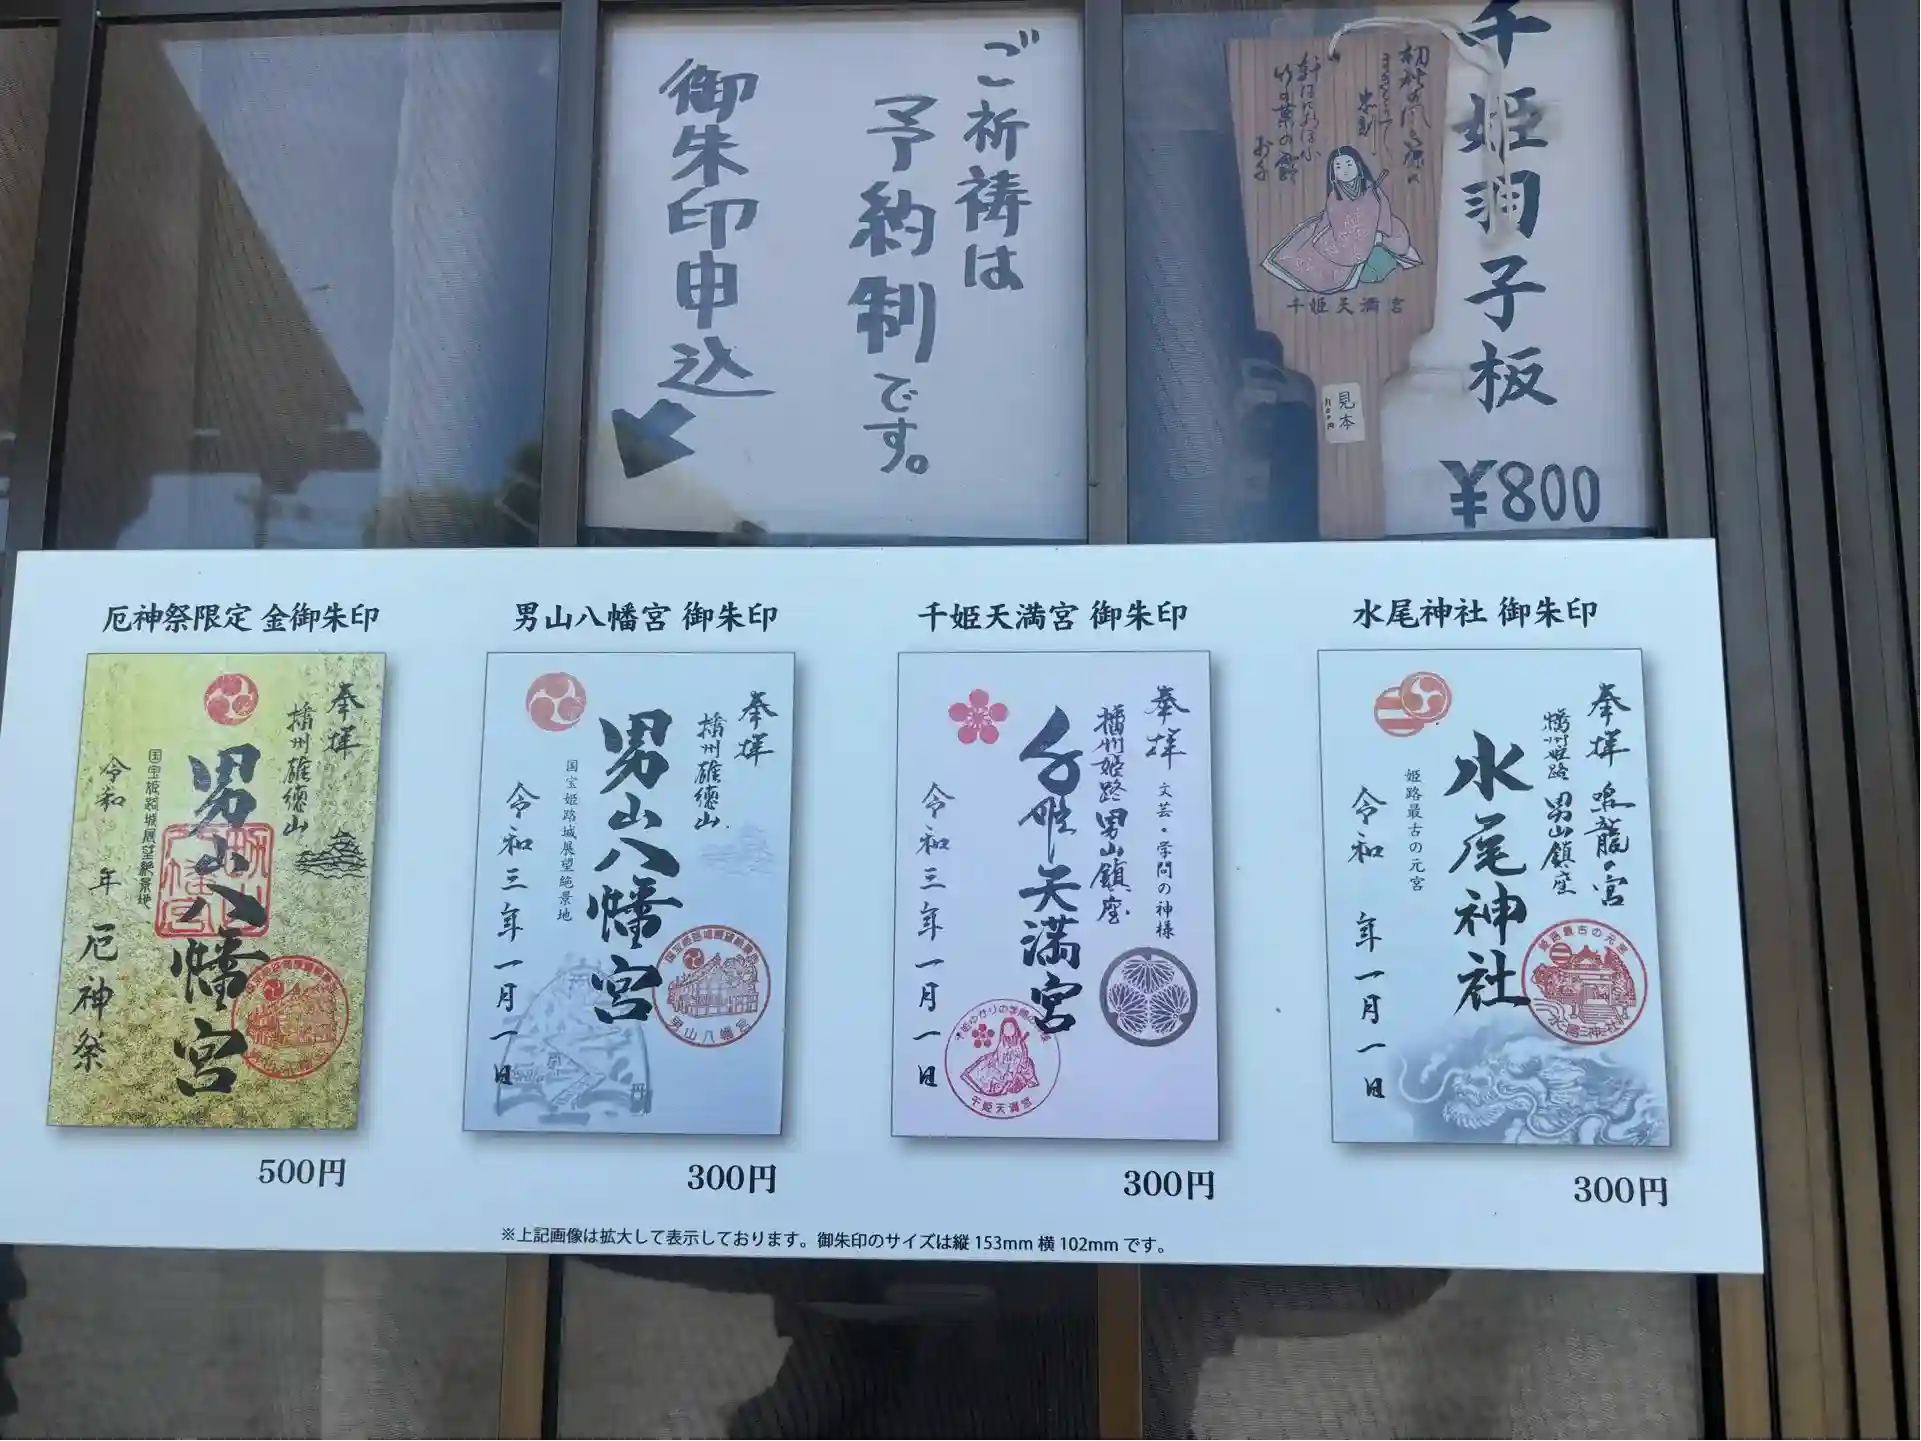 千姫羽子板
¥800
見本
千姫天満宮
ご祈祷は
予約制です。
御朱印申込
厄神祭限定 金御朱印
奉拝
播州雄徳山
男山八幡宮
国宝姫路城展望絶景地
令和 年 厄神祭
500円
男山八幡宮 御朱印
奉拝
播州雄徳山
男山八幡宮
国宝姫路城展望絶景地
令和三年一月一日
男山八幡宮
300円
千姫天満宮 御朱印
奉拝
文芸・学問の神様
播州姫路男山鎮座
千姫天満宮
令和三年一月一日
千姫天満宮
300円
水尾神社 御朱印
奉拝 鳴龍の宮
播州姫路 男山鎮座
水尾神社
姫路最古の元宮
令和 年一月一日
姫路最古の元宮
300円
※上記画像は拡大して表示しております。御朱印のサイズは縦 153mm 横 102mm です。